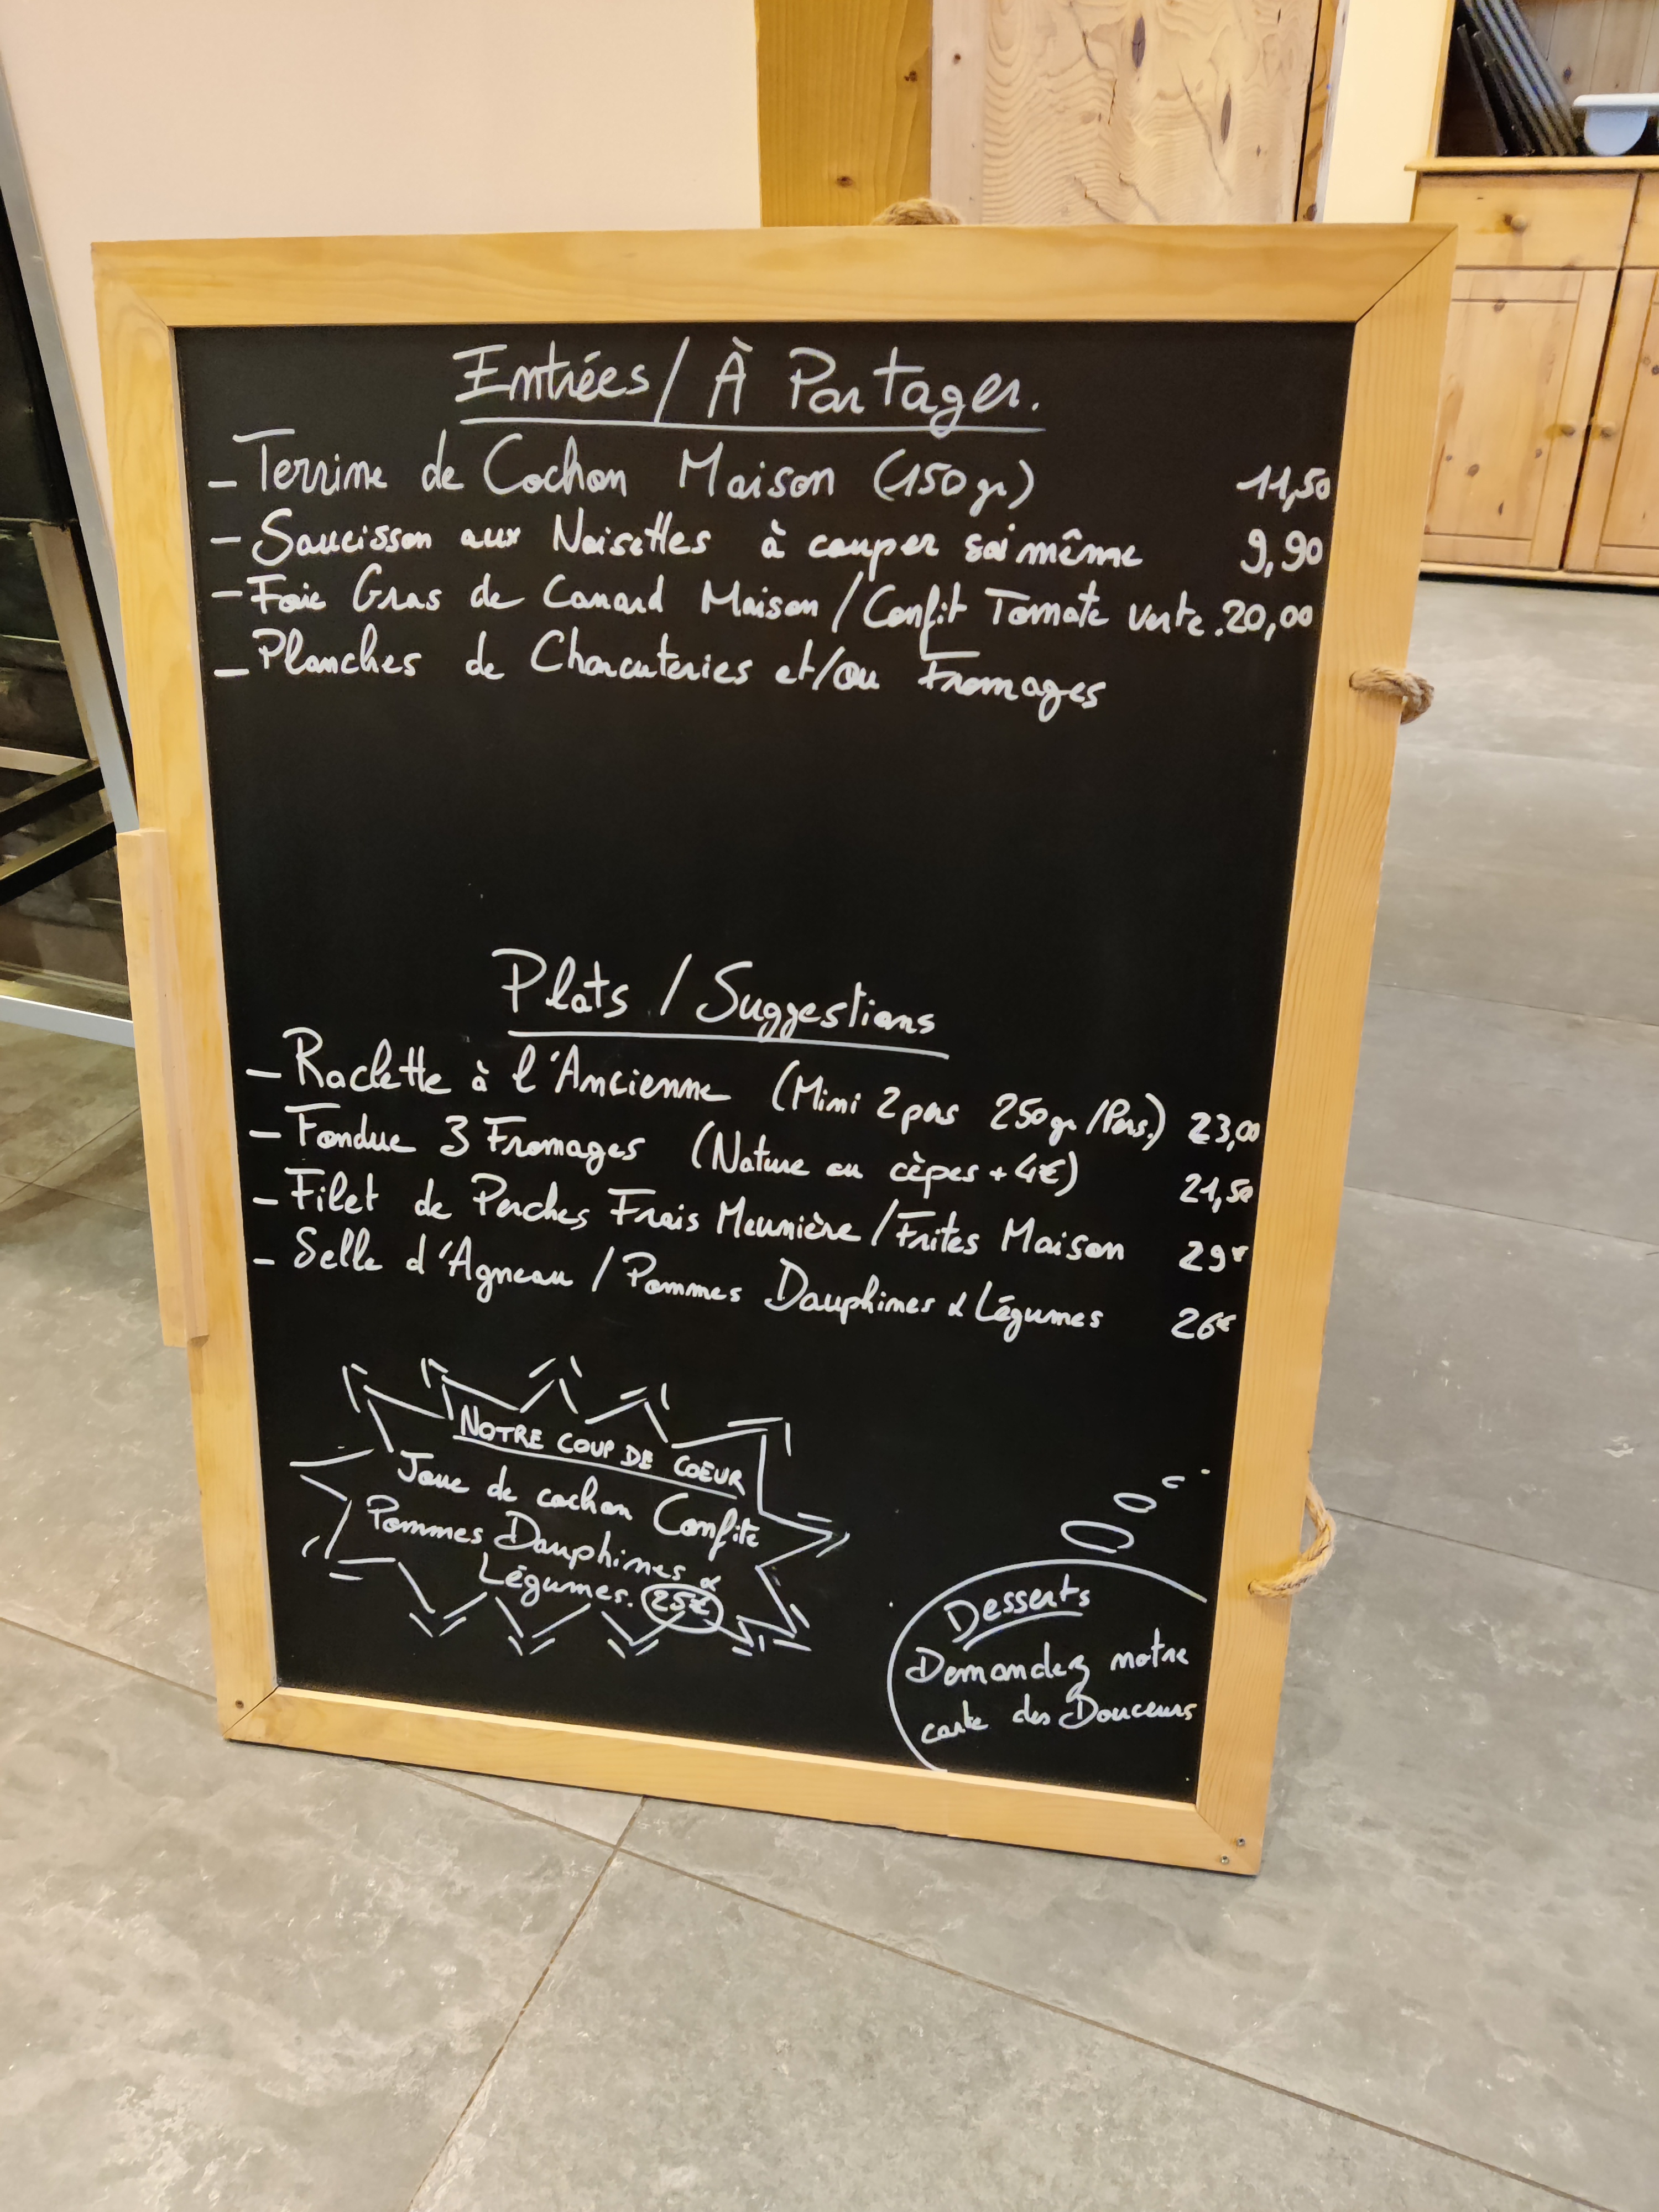 Entrées / À Partager.
- Terrine de Cochon Maison (150gr) 11,50
- Saucisson aux Noisettes à couper soi même 9,90
- Foie Gras de Canard Maison / Confit Tomate verte. 20,00
- Planches de Charcuteries et/ou Fromages
Plats / Suggestions
- Raclette à l'Ancienne (Mini 2 pers 250gr /Pers.) 23,00
- Fondue 3 Fromages (Nature ou cèpes + 4€) 21,50
- Filet de Perches Frais Meunière / Frites Maison 29€
- Selle d'Agneau / Pommes Dauphines & Légumes 26€
NOTRE COUP DE COEUR
Joue de cochon Confite
Pommes Dauphines &
Légumes. 25€
Desserts
Demandez notre
carte des Douceurs